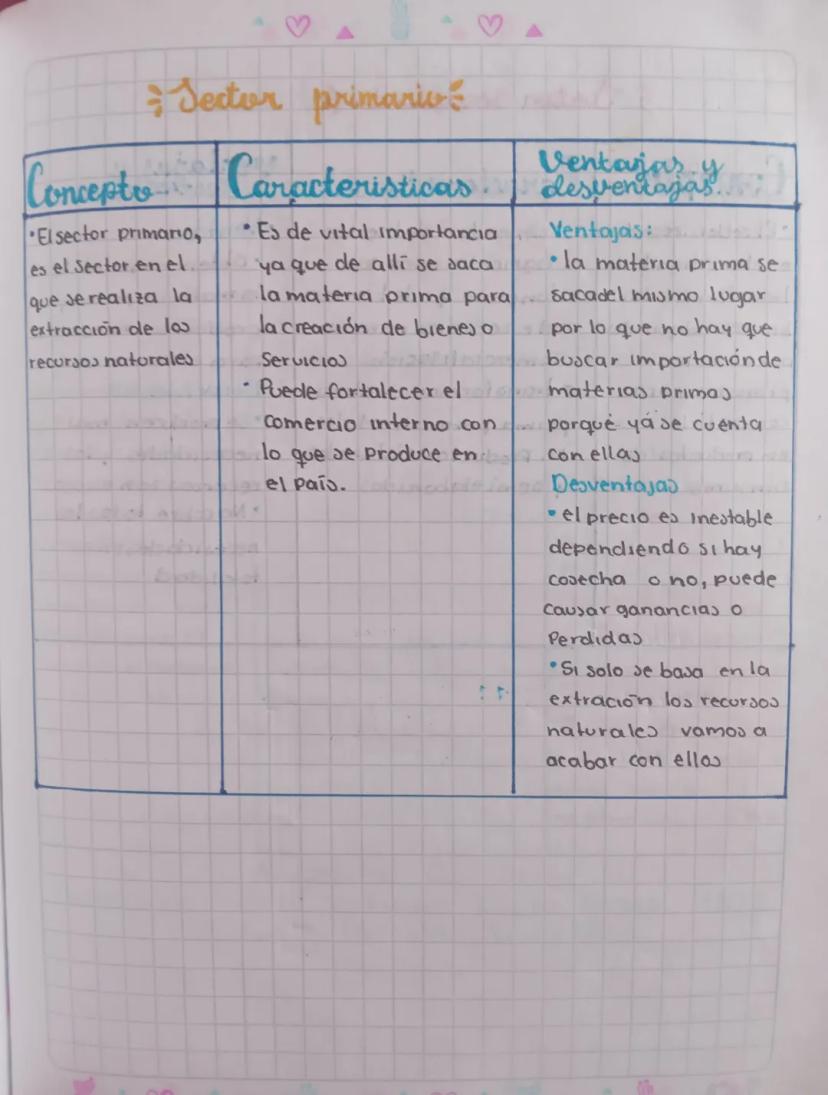 Sector primario
Concepto
Caracteristicas
Ventajas y
desventajas.
• El sector primario,
es el sector en el
que se realiza la
extracción de los
recursos naturales
• Es de vital importancia
ya que de allí se saca
la materia prima para
la creación de bienes o
Servicios
• Puede fortalecer el
comercio interno con
lo que se produce en
el país.
Ventajas:
• la materia prima se
saca del mismo lugar
por lo que no hay que
buscar importación de
materias primas
porqué yá se cuenta
con ellas
Desventajas
• el precio es inestable
dependiendo si hay
cosecha o no, puede
causar ganancias o
Perdidas
• Si solo se basa en la
extración los recursos
naturales vamos a
acabar con ellos